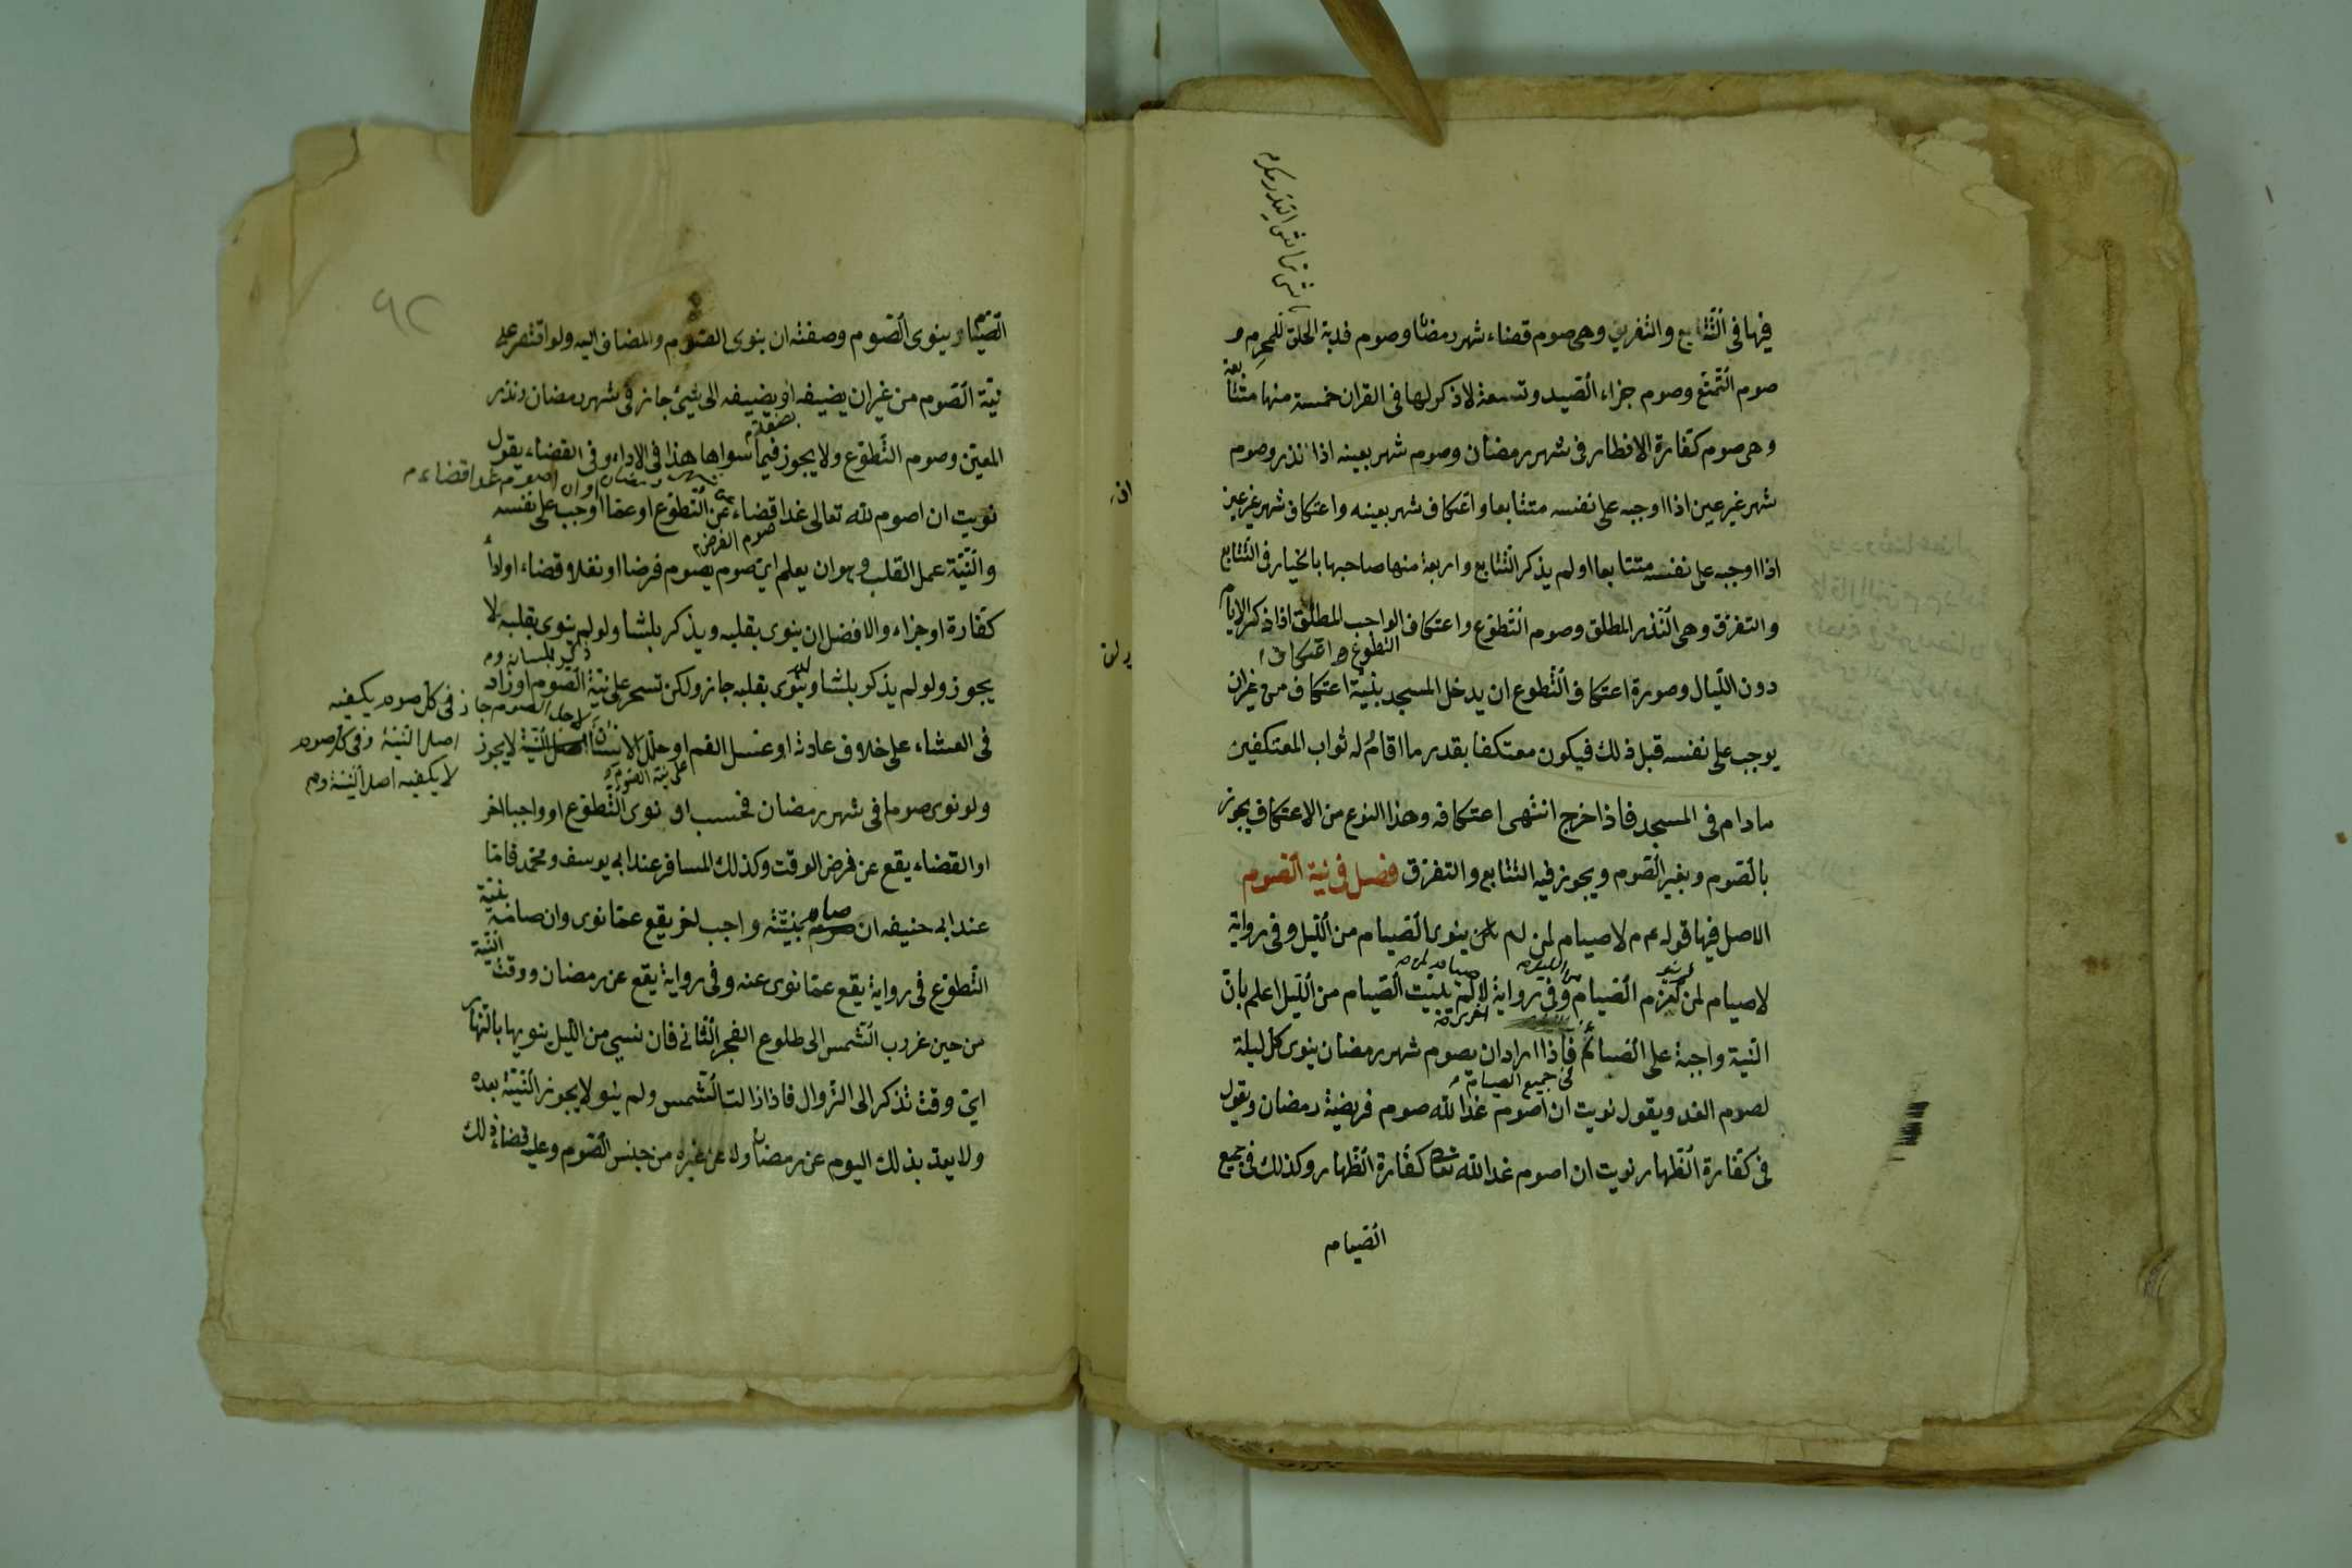 فيها فى التتابع والتفريق وهى صوم قضاء شهر رمضان وصوم فدية الحلق للمحرم و
صوم التمتع وصوم جزاء الصيد وتسعة لا ذكر لها فى القران خمسة منها متتابعة
وهى صوم كفارة الافطار فى شهر رمضان وصوم شهر بعينه اذا نذر وصوم
شهر غير عين اذا اوجبه على نفسه متتابعا واعتكاف شهر بعينه واعتكاف شهر غير عين
اذا اوجبه على نفسه متتابعا اولم يذكر التتابع واربعة منها صاحبها بالخيار فى التتابع
والتفرق وهى النذر المطلق وصوم التطوع واعتكاف الواجب المطلق اذا ذكر الايام
التطوع واعتكاف
دون الليال وصورة اعتكاف التطوع ان يدخل المسجد بنية اعتكاف من غير ان
يوجب على نفسه قبل ذلك فيكون معتكفا بقدر ما اقام له ثواب المعتكفين
مادام فى المسجد فاذا خرج انتهى اعتكافه وهذا النوع من الاعتكاف يجوز
بالصوم وبغير الصوم ويجوز فيه التتابع والتفرق فصل فى نية الصوم
الاصل فيها قوله عم لا صيام لمن لم ينوى الصيام من الليل وفى رواية
لا صيام لمن لم يعزم الصيام وفى رواية لمن لم يبيت الصيام من الليل اعلم بان
النية واجبة على الصائم فاذا اراد ان يصوم شهر رمضان ينوى كل ليلة
فى جميع الصيام
لصوم الغد ويقول نويت ان اصوم غدا لله صوم فريضة رمضان ويقول
فى كفارة الظهار نويت ان اصوم غدا لله تعالى كفارة الظهار وكذلك فى جميع
الصيام
٩٢
الصيام وينوى الصوم وصفته ان ينوى الصوم والمضاف اليه ولو اقتصر على
نية الصوم من غير ان يضيفه او يضيفه الى شيئ جاز فى شهر رمضان ونذر
المعين وصوم التطوع ولا يجوز فيما سواها هذا فى الاداء وفى القضاء يقول
اصوم غدا قضاء
نويت ان اصوم لله تعالى غدا قضاء عن التطوع او عما اوجب على نفسه
صوم الفرض
والنية عمل القلب وهو ان يعلم اى صوم يصوم فرضا او نفلا وقضاء او اداء
كفارة او جزاء والافضل ان ينوى بقلبه ويذكر بلسانه ولو لم ينوى بقلبه لا
ذكر بلسانه
يجوز ولو لم يذكر بلسانه وينوى بقلبه جاز ولكن تسحر على نية الصوم او زاد
لاجل الصوم جاز فى كل صوم يكفيه
اصل النية وفى كل صوم
لا يكفيه اصل النية
فى العشاء على خلاف عادته او غسل الفم او خلل الاسنان لا يجوز
على نية الصوم
ولو نوى صوما فى شهر رمضان فحسب او نوى التطوع او واجبا اخر
او القضاء يقع عن فرض الوقت وكذلك المسافر عند ابى يوسف ومحمد فاما
عند ابى حنيفه ان صام بنية واجب اخر يقع عما نوى وان صام بنية
التطوع فى رواية يقع عما نوى عنه وفى رواية يقع عن رمضان ووقت النية
من حين غروب الشمس الى طلوع الفجر الثانى فان نسى من الليل ينويها بالنهار
اى وقت تذكر الى الزوال فاذا زالت الشمس ولم ينو لا يجوز النية بعده
ولا يعد بذلك اليوم عن رمضان ولا عن غيره من جنس الصوم وعليه قضاء ذلك